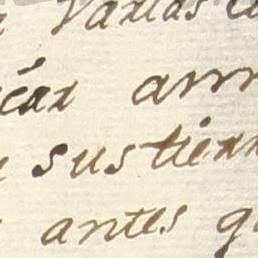 Varias
car arr
sustien
antes q